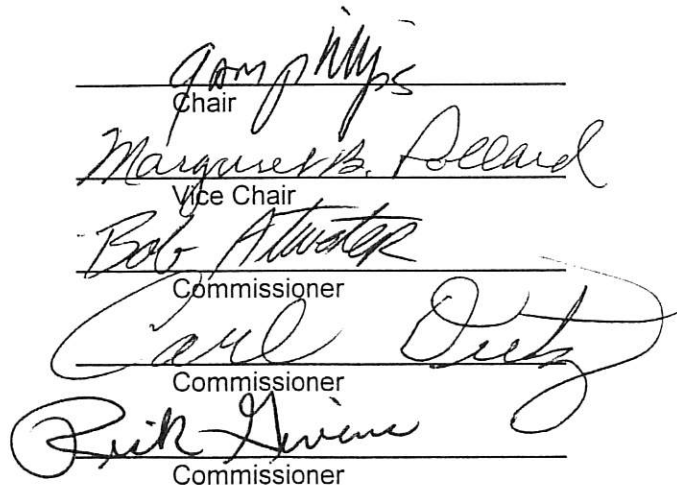 Gary Phillips
Chair
Margaret B. Pollard
Vice Chair
Bob Atwater
Commissioner
Carl Outz
Commissioner
Rick Givens
Commissioner